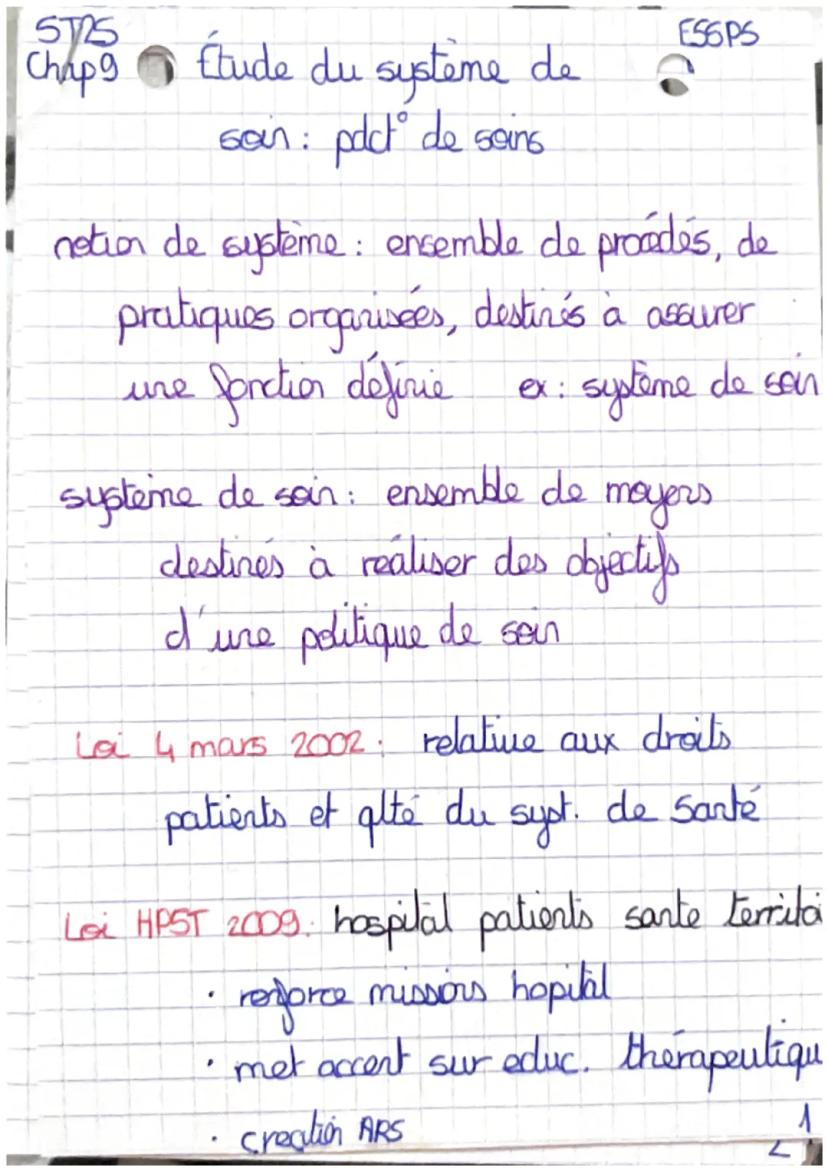 ST2S
ESSPS
Chap9
Étude du système de
soin : pdct° de soins
notion de système : ensemble de procédés, de
pratiques organisées, destinés à assurer
une fonction définie ex : système de soin
système de soin : ensemble de moyens
destinés à réaliser des objectifs
d'une politique de soin
Loi 4 mars 2002 : relative aux droits
patients et qlté du syst. de Santé
Loi HPST 2009 : hospital patients sante territoi
· renforce missions hopital
· met accent sur educ. thérapeutiqu
· creation ARS
1
2